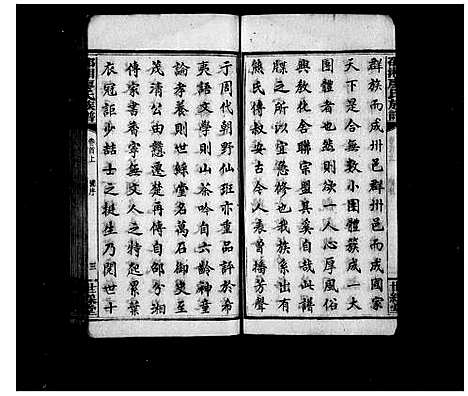 群族而成州邑群州邑而成國家
天下是合無數小團體族成一大
團體者也然則欲一人心厚風俗
興教徒舍聯宗盟其奚自哉此譜
牒之所以宜急修也我族系出有
熊氏傳叔安古今人表曾播芳聲
于周代朝野仙班亦重品評於希
夷語文學則山茶吟自六齡神童
論孝養則世綵堂名萬石御奬至
茂清公由懸遷楚再傳自邵分湘
傳家書香寧無文人之特起累葉
衣冠詎少喆士之挺生乃閱世十
卷首上
三